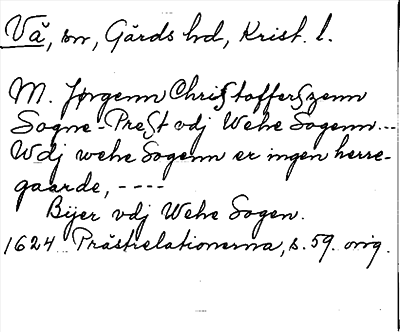 Vä, sn, Gärds hd, Krist. l.
M. Jørgenn Christofferszenn
Sogne-Prest vdj Wehe Sogenn...
Wdj wehe Sogenn er ingen herre-
gaarde, ----
Bijer vdj Wehe Sogen.
1624 Prästrelationerna, s. 59. orig.